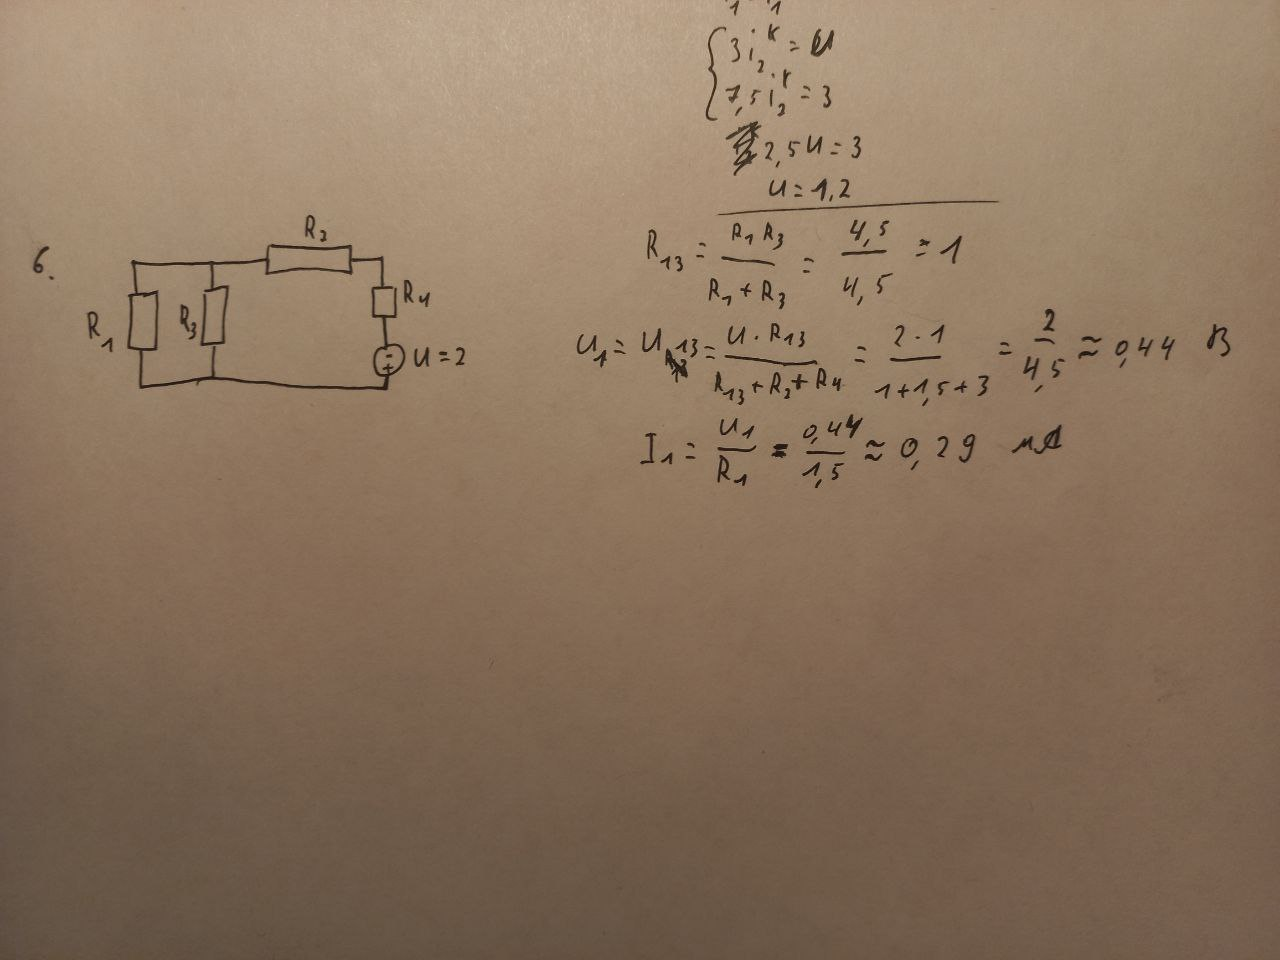 3i₂ᵏ = U
7,5i₂ᵏ = 3
2,5U = 3
U = 1,2
6.
R₂
R₁
R₃
R₄
U = 2
R₁₃ = R₁R₃ / (R₁ + R₃) = 4,5 / 4,5 = 1
U₁ = U₁₃ = U · R₁₃ / (R₁₃ + R₂ + R₄) = 2 · 1 / (1 + 1,5 + 3) = 2 / 4,5 ≈ 0,44 В
I₁ = U₁ / R₁ = 0,44 / 1,5 ≈ 0,29 мА